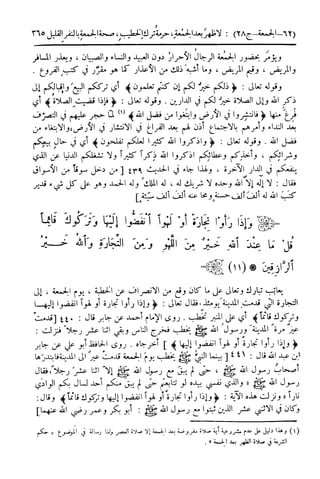 (٦٢-الجمعة-ج٢٨) : لا ظهر بعد الجمعة، حرمة ترك الخطيب، صحة الجمعة بالنفر القليل ٣٦٥
ويؤمر بحضور الجمعة الرجال الأحرار دون العبيد والنساء والصبيان، ويعذر المسافر
والمريض، وقيم المريض، وما أشبه ذلك من الأعذار كما هو مقرر في كتب الفروع.
وقوله تعالى: ﴿ذلكم خير لكم إن كنتم تعلمون﴾ أي ترككم البيع وإقبالكم إلى
ذكر الله وإلى الصلاة خير لكم في الدارين. وقوله تعالى: ﴿فإذا قضيت الصلاة﴾ أي
فرغ منها ﴿فانتشروا في الأرض وابتغوا من فضل الله﴾ (١) لما حجر عليهم في التصرف
بعد النداء وأمرهم بالاجتماع أذن لهم بعد الفراغ في الانتشار في الأرض والابتغاء من
فضل الله. وقوله تعالى: ﴿واذكروا الله كثيرا لعلكم تفلحون﴾ أي في حال بيعكم
وشرائكم، وأخذكم وعطائكم اذكروا الله ذكراً كثيراً ولا تشغلكم الدنيا عن الذي
ينفعكم في الدار الآخرة، ولهذا جاء في الحديث ٤٣٩ [من دخل سوقاً من الأسواق
فقال: لا إله إلا الله وحده لا شريك له، له الملك وله الحمد وهو على كل شيء قدير
كتب الله له ألف ألف حسنة ومحا عنه ألف ألف سيئة]
وَإِذَا رَأَوْا تِجَارَةً أَوْ لَهْوًا انْفَضُّوا إِلَيْهَا وَتَرَكُوكَ قَائِمًا
قُلْ مَا عِنْدَ اللَّهِ خَيْرٌ مِنَ اللَّهْوِ وَمِنَ التِّجَارَةِ وَاللَّهُ خَيْرُ
الرَّازِقِينَ ﴿١١﴾
يعاتب تبارك وتعالى على ما كان وقع من الانصراف عن الخطبة، يوم الجمعة، إلى
التجارة التي قدمت المدينة يومئذ، فقال تعالى: ﴿وإذا رأوا تجارة أو لهواً انفضوا إليها
وتركوك قائماً﴾ أي على المنبر تخطب. روى الإمام أحمد عن جابر قال: ٤٤٠ [قدمت
عير مرة المدينة ورسول الله ﷺ يخطب فخرج الناس وبقي اثنا عشر رجلاً فنزلت:
﴿وإذا رأوا تجارة أو لهوا انفضوا إليها﴾] أخرجاه. روى الحافظ أبو يعلى عن جابر
ابن عبد الله قال: ٤٤١ [بينما النبي ﷺ يخطب يوم الجمعة قدمت عير إلى المدينة فابتدرها
أصحاب رسول الله ﷺ، حتى لم يبق مع رسول الله ﷺ إلا اثنا عشر رجلاً، فقال
رسول الله ﷺ «والذي نفسي بيده لو تتابعتم حتى لم يبق منكم أحد لسال بكم الوادي
ناراً» ونزلت هذه الآية: ﴿وإذا رأوا تجارة أو لهواً انفضوا إليها وتركوك قائماً﴾ وقال:
وكان في الاثني عشر الذين ثبتوا مع رسول الله ﷺ: أبو بكر وعمر رضي الله عنهما]
(١) وهذا دليل على عدم مشروعية أية صلاة مفروضة بعد الجمعة إلا صلاة العصر ولنا رسالة في الموضوع «حكم
الشرعة في صلاة الظهر بعد الجمعة».